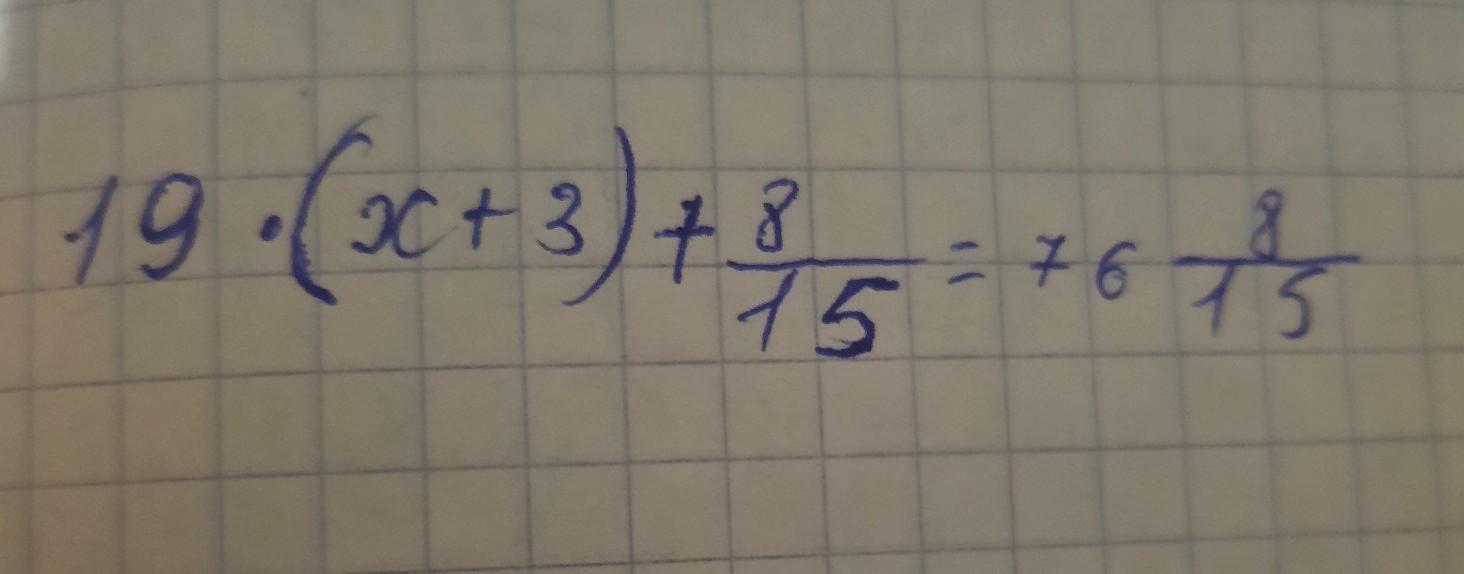 19 · (x + 3) + 8/15 = 76 8/15